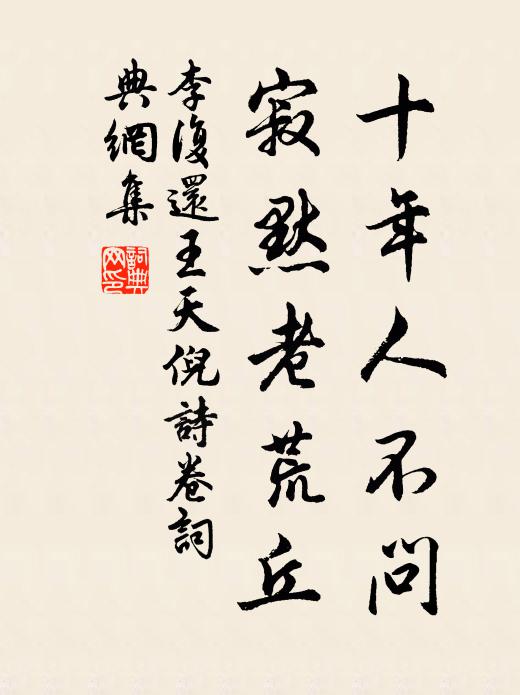 十年人不問
寂默老荒丘
李復還王天倪詩卷詞
典網集
詞典網印